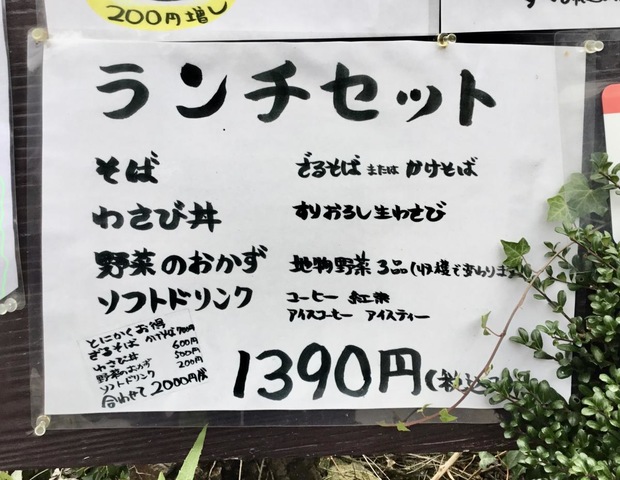 200円増し
ランチセット
そば ざるそば または かけそば
わさび丼 すりおろし生わさび
野菜のおかず 地物野菜 3品(収穫で変わります
ソフトドリンク コーヒー 紅茶
アイスコーヒー アイスティー
とにかくお得
ざるそば かけそば 700円
わさび丼 600円
野菜のおかず 500円
ソフトドリンク 200円
合わせて2000円が
1390円(税込